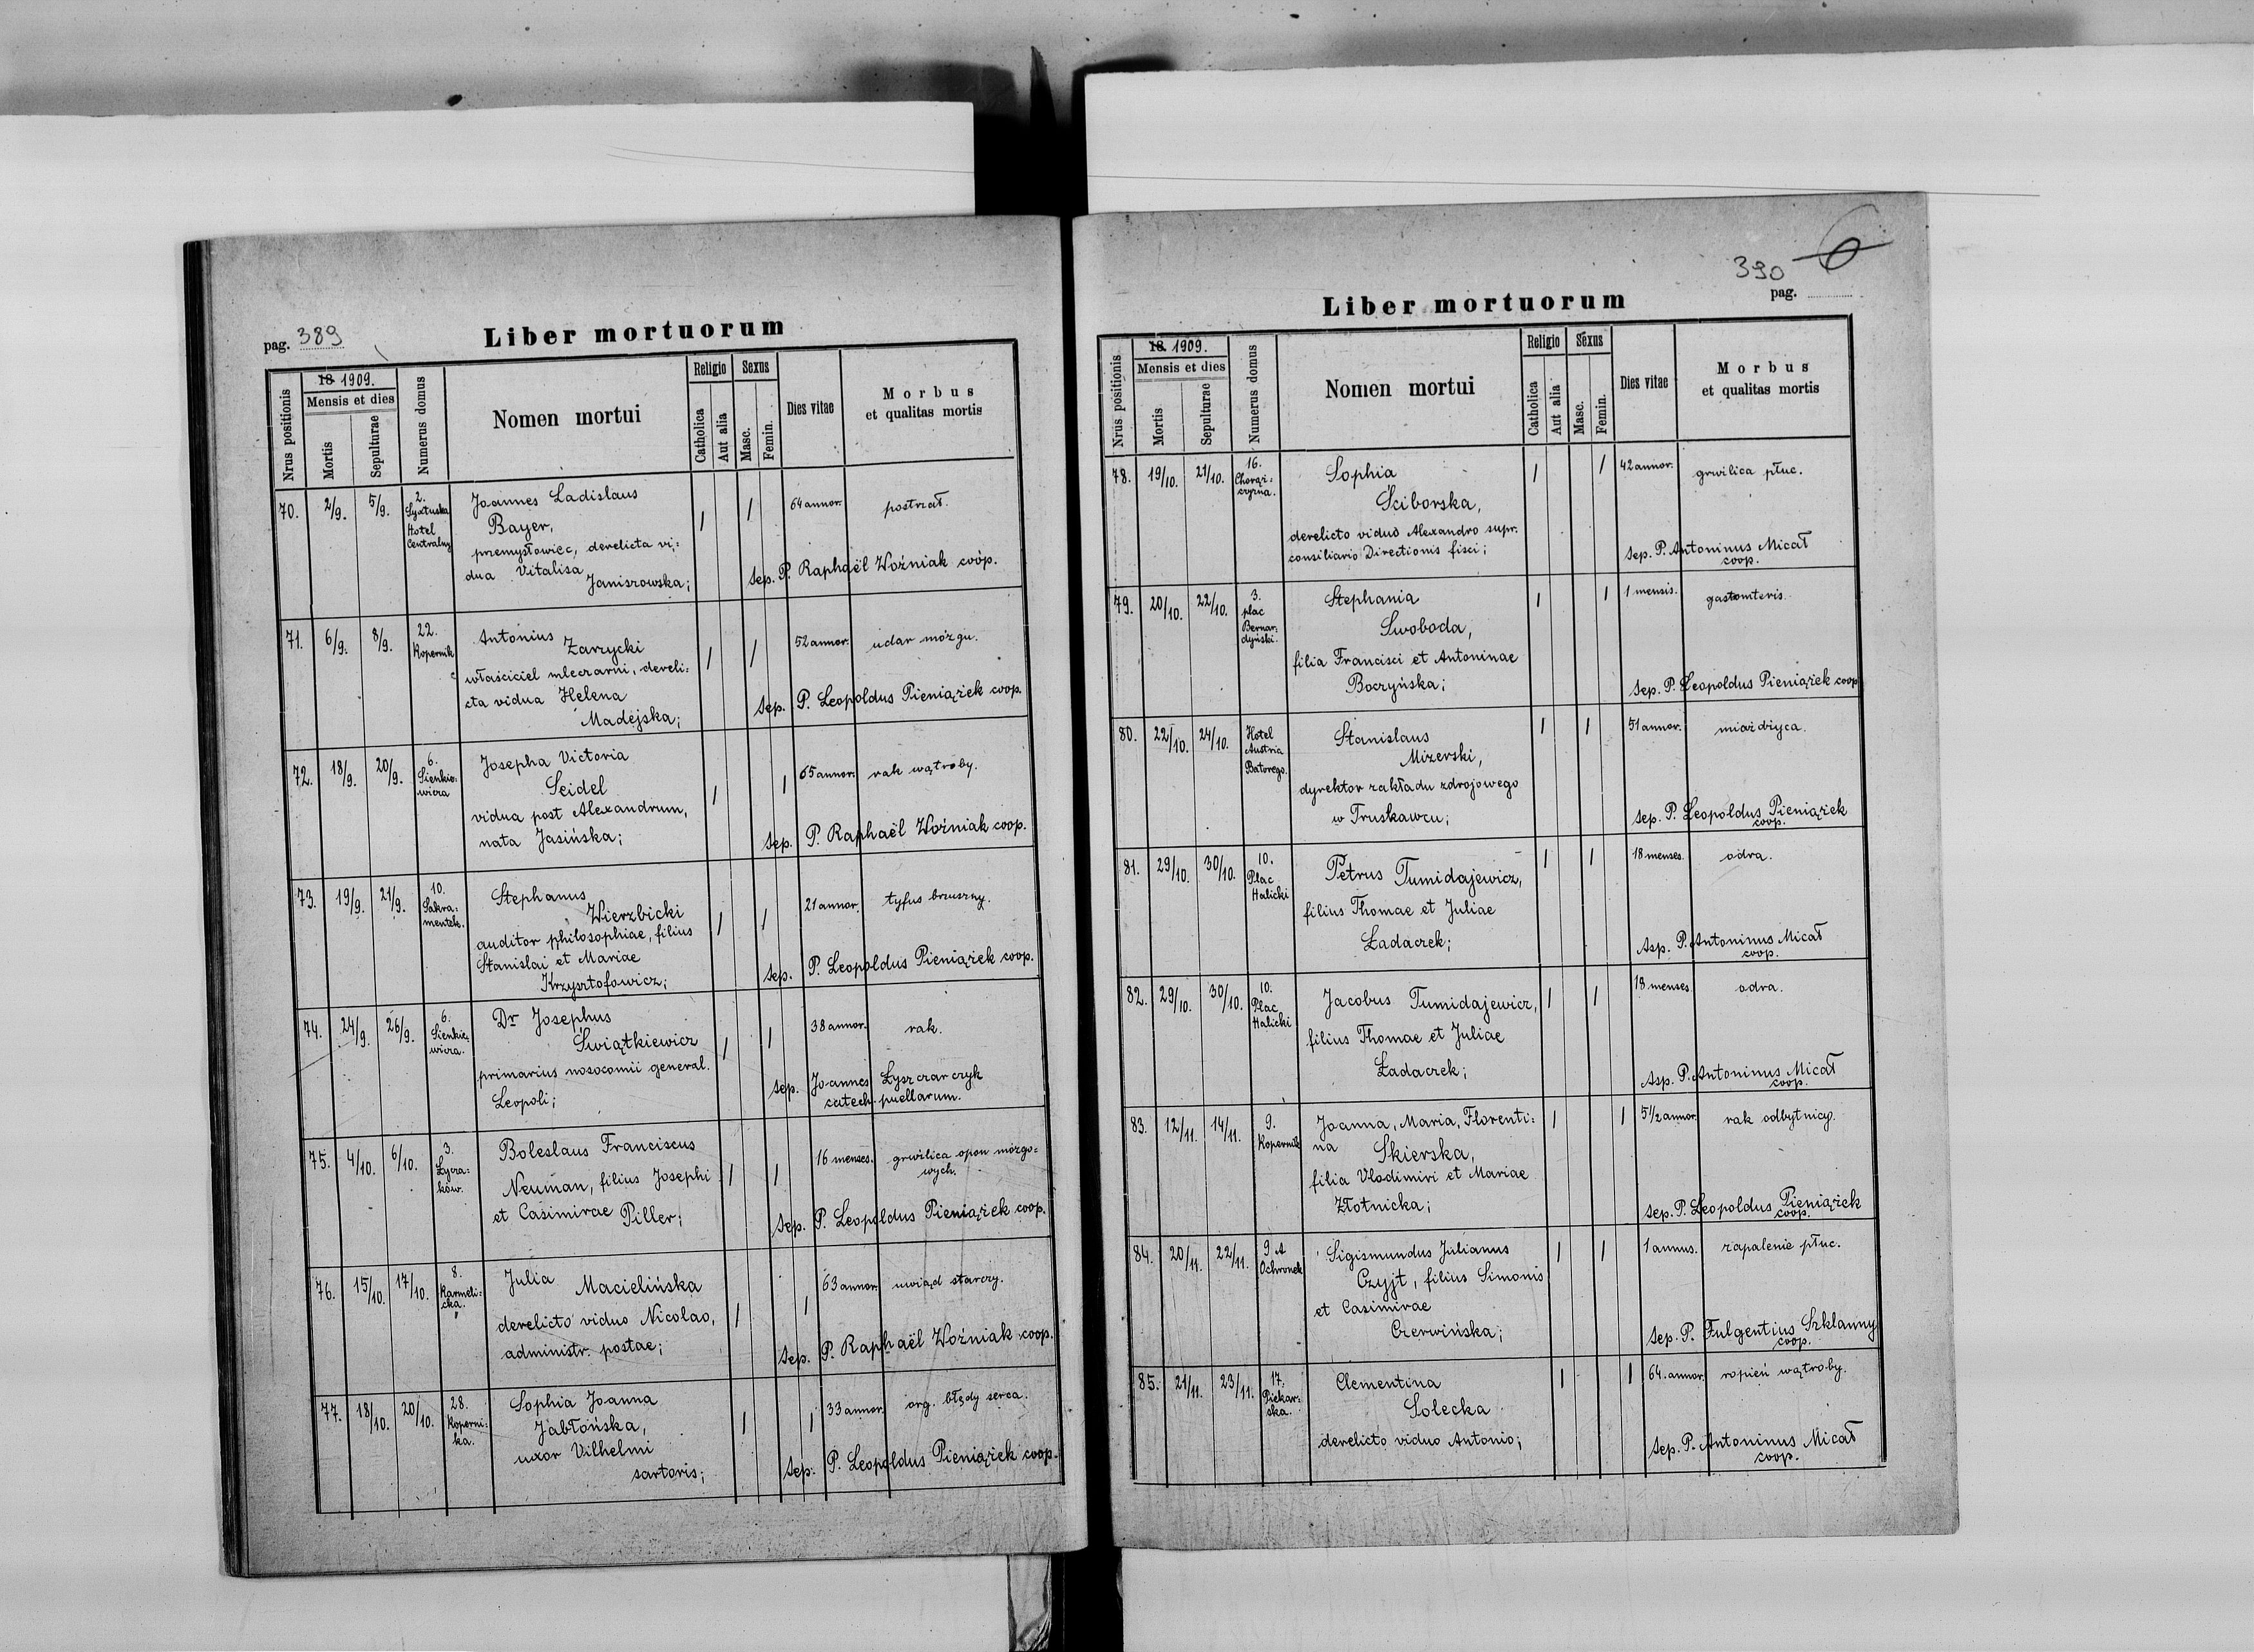 pag. 389
Liber mortuorum
Nrus positionis
18 1909.
Mensis et dies
Mortis
Sepulturae
Numerus domus
Nomen mortui
Religio
Catholica
Aut alia
Sexus
Masc.
Femin.
Dies vitae
Morbus
et qualitas mortis
70. 2/9. 5/9. 2. Joannes Ladislaus 1 1 64 annor. postrzał.
Syxtuska Bayer,
Hotel przemysłowiec, derelicta vi:
Centralny dua Vitalisa
Janiszowska; sep. P. Raphaël Woźniak coop.
71. 6/9. 8/9. 22. Antonius 1 1 52 annor. udar mózgu.
Kopernik Zarzycki
właściciel mleczarni, dereli:
cta vidua Helena
Madejska; sep. P. Leopoldus Pieniążek coop.
72. 18/9. 20/9. 6. Josepha Victoria 1 1 65 annor. rak wątroby.
Sienkie: Seidel
wicza vidua post Alexandrum,
nata Jasińska; sep. P. Raphaël Woźniak coop.
73. 19/9. 21/9. 10. Stephanus 1 1 21 annor. tyfus brzuszny.
Sakra: Wierzbicki
mentek. auditor philosophiae, filius
Stanislai et Mariae
Krzysztofowicz; sep. P. Leopoldus Pieniążek coop.
74. 24/9. 26/9. 6. Dr Josephus 1 1 38 annor. rak.
Sienkie: Świątkiewicz
wicza. primarius nosocomii general.
Leopoli; sep. Joannes Łyszczarczyk
catech. puellarum.
75. 4/10. 6/10. 3. Boleslaus Franciscus 1 1 16 menses. gruźlica opon mózgo:
Łycza: wych.
ków. Neuman, filius Josephi
et Casimirae Piller; sep. P. Leopoldus Pieniążek coop.
76. 15/10. 17/10. 8. Julia 1 1 63 annor. uwiąd starczy.
Karmeli: Macielińska
cka. derelicto viduo Nicolao,
administr. postae; sep. P. Raphaël Woźniak coop.
77. 18/10. 20/10. 28. Sophia Joanna 1 1 33 annor. org. błędy serca.
Koperni: Jabłońska,
ka. uxor Vilhelmi
sartoris; sep. P. Leopoldus Pieniążek coop.
390 6
pag.
Liber mortuorum
Nrus positionis
18 1909.
Mensis et dies
Mortis
Sepulturae
Numerus domus
Nomen mortui
Religio
Catholica
Aut alia
Sexus
Masc.
Femin.
Dies vitae
Morbus
et qualitas mortis
78. 19/10. 21/10. 16. Sophia 1 1 42 annor. gruźlica płuc.
Chorąż: Ściborska,
czyzna. derelicto viduo Alexandro supr.
consiliario Directionis fisci; sep. P. Antoninus Micał
coop.
79. 20/10. 22/10. 3. Stephania 1 1 1 mensis. gastroenteris.
plac Swoboda,
Bernar:
dyński. filia Francisci et Antoninae
Boczyńska; sep. P. Leopoldus Pieniążek coop
80. 22/10. 24/10. Hotel Stanislaus 1 1 51 annor. miażdżyca.
Austria Mizerski,
Batorego. dyrektor zakładu zdrojowego
w Truskawcu; sep. P. Leopoldus Pieniążek
coop.
81. 29/10. 30/10. 10. Petrus Tumidajewicz, 1 1 18 menses. odra.
Plac
Halicki filius Thomae et Juliae
Ładaczek; Asp. P. Antoninus Micał
coop.
82. 29/10. 30/10. 10. Jacobus Tumidajewicz, 1 1 18 menses. odra.
Plac
Halicki filius Thomae et Juliae
Ładaczek; Asp. P. Antoninus Micał
coop.
83. 12/11. 14/11. 9. Joanna, Maria, Florenti: 1 1 5 1/2 annor. rak odbytnicy.
Kopernik na Skierska,
filia Vlodimiri et Mariae
Złotnicka; sep. P. Leopoldus Pieniążek
coop.
84. 20/11. 22/11. 9 A Sigismundus Julianus 1 1 1 annus. zapalenie płuc.
Ochronek Czyjt, filius Simonis
et Casimirae
Czerwińska; sep. P. Fulgentius Szklanny
coop.
85. 21/11. 23/11. 17. Clementina 1 1 64. annor. ropień wątroby.
Piekar: Solecka
ska. derelicto viduo Antonio; sep. P. Antoninus Micał
coop.